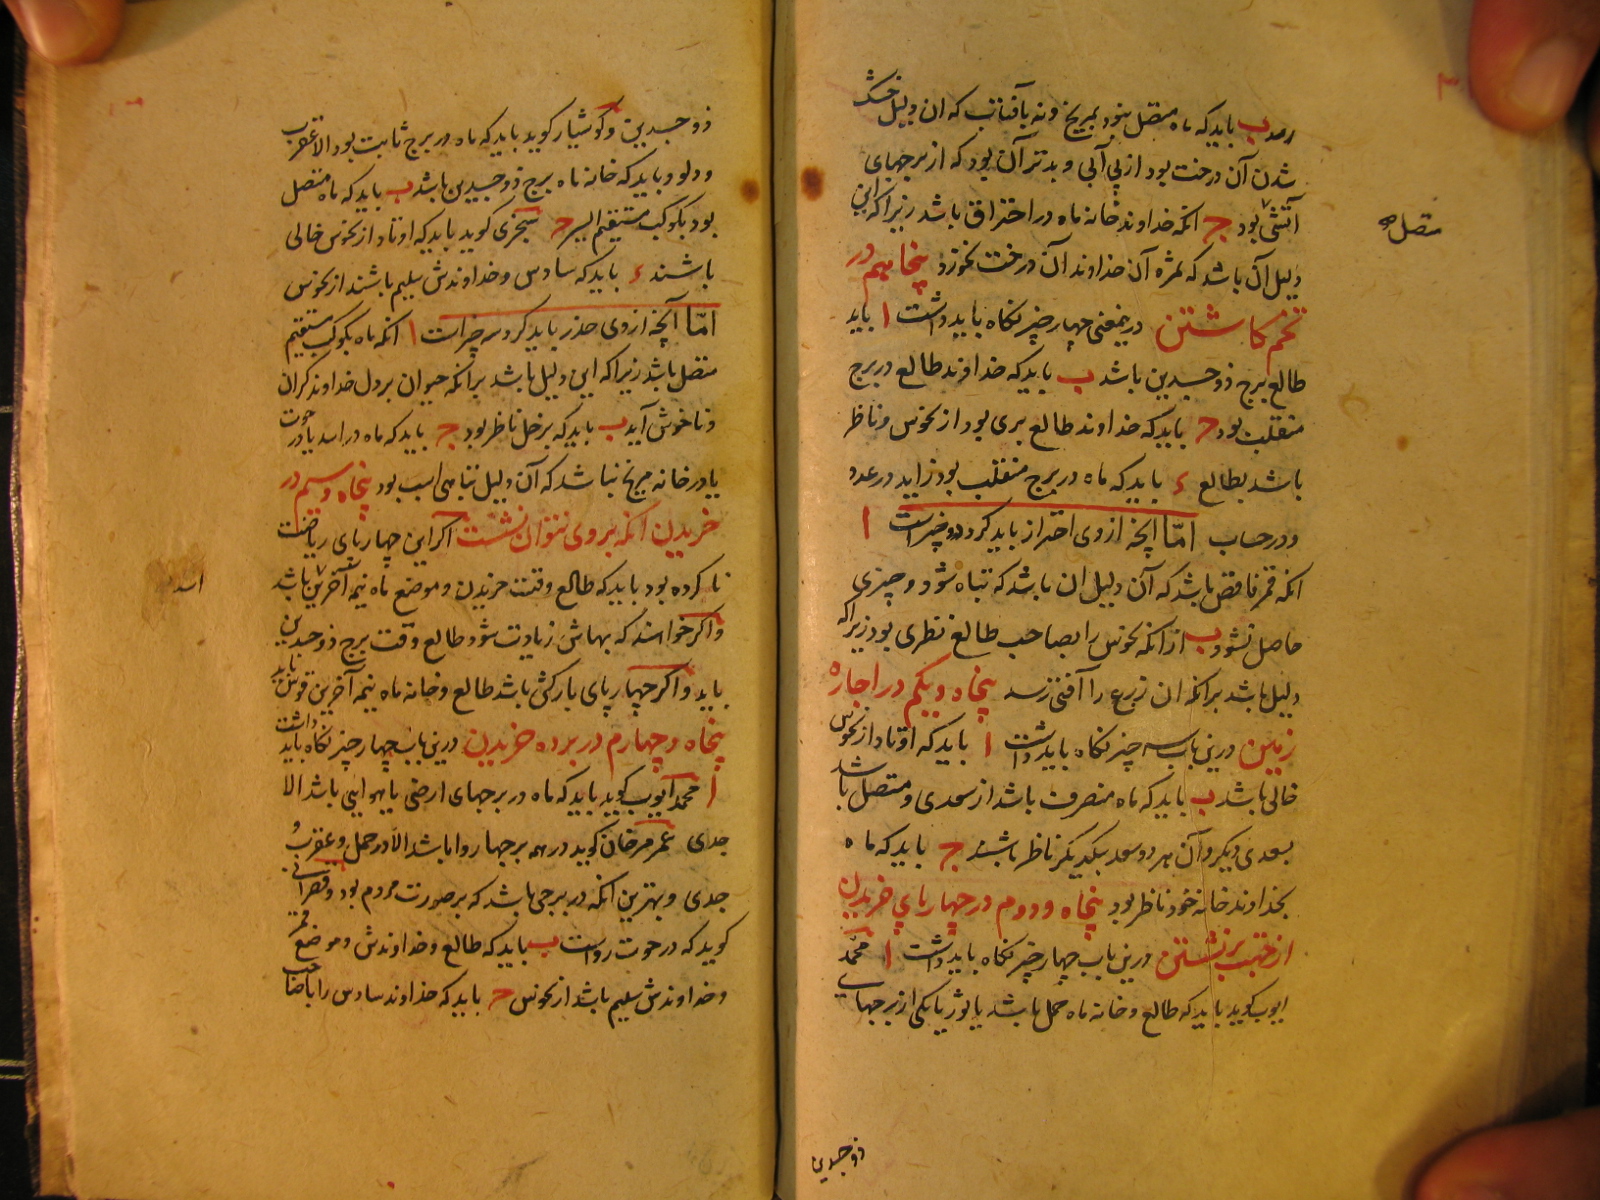 رسد ب باید که ماه متصل نبود بمریخ و نه بآفتاب که آن دلیل خشک
شدن آن درخت بود از بی آبی و بدتر آن بود که از برجهای
آتشی بود ج انکه خداوند خانه ماه در احتراق باشد زیرا که این
متصل
دلیل آن باشد که ثمره آن خداوند آن درخت نخورد پنجاهم در
تخم کاشتن درینمعنی چهار چیز نگاه باید داشت ا باید
طالع برج ذوجسدین باشد ب باید که خداوند طالع در برج
منقلب بود ج باید که خداوند طالع بری بود از نحوس و ناظر
باشد بطالع ء باید که ماه در برج منقلب بود زاید در عدد
و در حساب امّا انچه از وی احتراز باید کرد دو چیز است ا
انکه قمر ناقص باشد که آن دلیل ان باشد که تباه شود و چیزی
حاصل نشود ب از انکه نحوس را بصاحب طالع نظری بود زیرا که
دلیل باشد برانکه ان زرع را آفتی رسد پنجاه و یکم در اجاره
زمین درین باب سه چیز نگاه باید داشت ا باید که اوتاد از نحوس
خالی باشد ب باید که ماه منصرف باشد از سعدی و متصل باشد
بسعدی دیگر و آن هر دو سعد بیکدیگر ناظر باشند ج باید که ماه
بخداوند خانه خود ناظر بود پنجاه و دوم در چهارپای خریدن
از جهت برنشستن درین باب چهار چیز نگاه باید داشت ا محمد
ایوب گوید باید که طالع و خانه ماه حمل باشد یا ثور یا یکی از برجهای
ذوجسدین
ذوجسدین و کوشیار گوید باید که ماه در برج ثابت بود الا عقرب
و دلو و باید که خانه ماه برج ذوجسدین باشد ب باید که ماه متصل
بود بکوکب مستقیم السیر ج سجزی گوید باید که اوتاد از نحوس خالی
باشند ء باید که سادس و خداوندش سلیم باشند از نحوس
امّا آنچه از وی حذر باید کرد سه چیز است ا انکه ماه بکوکب مستقیم
متصل باشد زیرا که این دلیل باشد برانکه حیوان بر دل خداوند گران
و ناخوش آید ب باید که بزحل ناظر بود ج باید که ماه در اسد یا در حوت
یا در خانه مریخ نباشد که آن دلیل تباهی اسب بود پنجاه و سیم در
خریدن انکه بر وی نتوان نشست اگر این چهارپای ریاضت
نا کرده بود باید که طالع وقت خریدن و موضع ماه نیمه آخرین باشد
اسد
و اگر خواهند که بهاش زیادت شود طالع وقت برج ذوجسدین
باید و اگر چهارپای بارکش باشد طالع و خانه ماه نیمه آخرین قوس باید
پنجاه و چهارم در برده خریدن درین باب چهار چیز نگاه باید داشت
ا محمد ایوب گوید باید که ماه در برجهای ارضی یا هوایی باشد الا
جدی عمر فرخان گوید در همه برجها روا باشد الّا در حمل و عقرب و
جدی و بهترین انکه در برجی باشد که بر صورت مردم بود و قصرانی
گوید که در حوت رواست ب باید که طالع و خداوندش و موضع قمر
و خداوندش سلیم باشد از نحوس ج باید که خداوند سادس را با صاحب